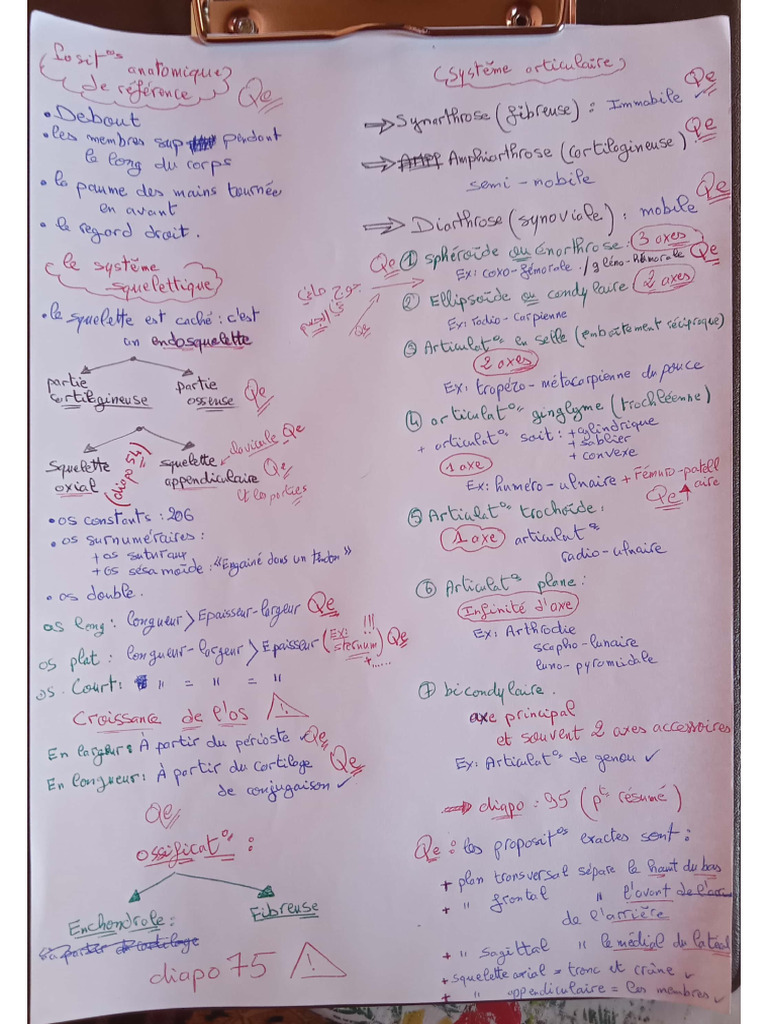 Posit°s anatomique
de référence Qe
• Debout
• les membres sup pendant
le long du corps
• la paume des mains tournée
en avant
• le regard droit.
le système
squelettique
• le squelette est caché : c'est
un endosquelette
partie cartilagineuse
partie ossense Qe
Squelette oxial (diapo 54)
squelette appendiculaire clavicule Qe
Qe
et les parties
• os constants : 206
• os surnuméraires :
+ os suturaux
+ os sésamoïde : « Engainé dans un tendon »
• os double.
os long : longueur > Epaisseur-largeur Qe
os plat : longueur-largeur > Epaisseur (Ex: sternum) !!! Qe
+.....
os. Court : " = " = "
Croissance de l'os !
En largeur : À partir du périoste ✓ Qe
En longueur : À partir du cartilage Qe
de conjugaison ✓
Qe
ossificat° :
Enchondrale :
Fibreuse
à partir de cartilage
diapo 75 !
Système articulaire
⇒ Synarthrose (fibreuse) : Immobile ✓ Qe
⇒ Amphiarthrose (cartilagineuse) : Qe
semi-mobile
→ Diarthrose (synoviale) : mobile Qe
Qe ① sphéroïde ou énarthrose : 3 axes
Ex: coxo-fémorale / gléno-humorale Qe
② Ellipsoïde ou condylaire 2 axes
Ex: radio-carpienne
Qe
③ Articulat° en selle (emboitement réciproque)
2 axes
Ex: trapézo-métacarpienne du pouce
④ articulat° ginglyme (trochléenne)
+ articulat° soit : + cylindrique
+ sablier
+ convexe
1 axe
Ex: huméro-ulnaire + Fémuro-patellaire
Qe
⑤ Articulat° trochoïde :
1 axe articulat°
radio-ulnaire
⑥ Articulat° plane :
Infinité d'axe
Ex: Arthrodie
scapho-lunaire
luno-pyramidale
⑦ bicondylaire.
axe principal
et souvent 2 axes accessoires
Ex: Articulat° de genou ✓
⇒ diapo : 95 (pt résumé)
Qe : les proposit°s exactes sont :
+ plan transversal sépare le haut du bas
+ " frontal " l'avant de l'arri
de l'arrière
+ " sagittal " le médial du latéral
+ squelette axial = tronc et crâne ✓
+ " appendiculaire = les membres ✓